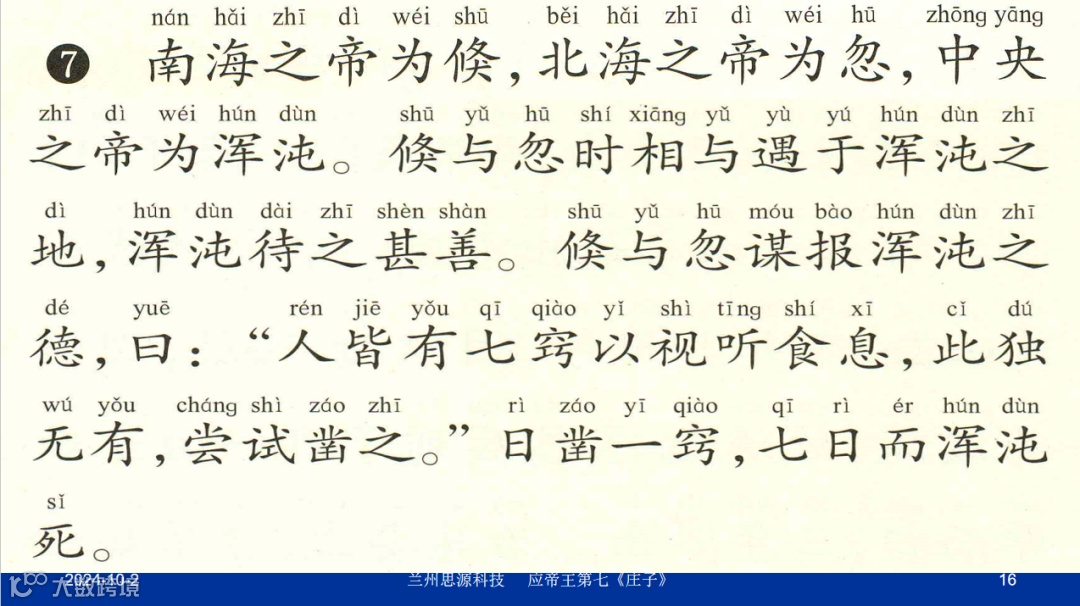 nán hǎi zhī dì wéi shū běi hǎi zhī dì wéi hū zhōng yāng
7 南海之帝为倏，北海之帝为忽，中央
zhī dì wéi hún dùn shū yǔ hū shí xiāng yǔ yù yú hún dùn zhī
之帝为浑沌。倏与忽时相与遇于浑沌之
dì hún dùn dài zhī shèn shàn shū yǔ hū móu bào hún dùn zhī
地，浑沌待之甚善。倏与忽谋报浑沌之
dé yuē rén jiē yǒu qī qiào yǐ shì tīng shí xī cǐ dú
德，曰：“人皆有七窍以视听食息，此独
wú yǒu cháng shì záo zhī rì záo yī qiào qī rì ér hún dùn
无有，尝试凿之。”日凿一窍，七日而浑沌
sǐ
死。
2024-10-2 兰州思源科技 应帝王第七《庄子》 16
大数跨境